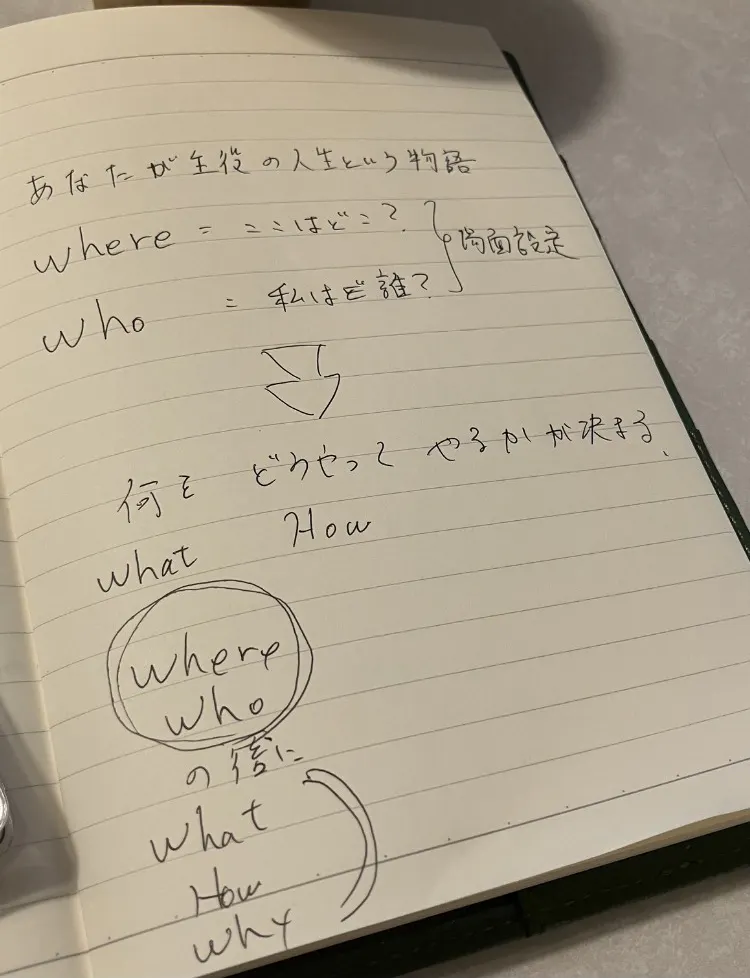 あなたが主役の人生という物語
where = ここはどこ?
場面設定
who = 私はど誰?
何を どうやって やるかが決まる、
what How
where
who
の後に
what
How
why